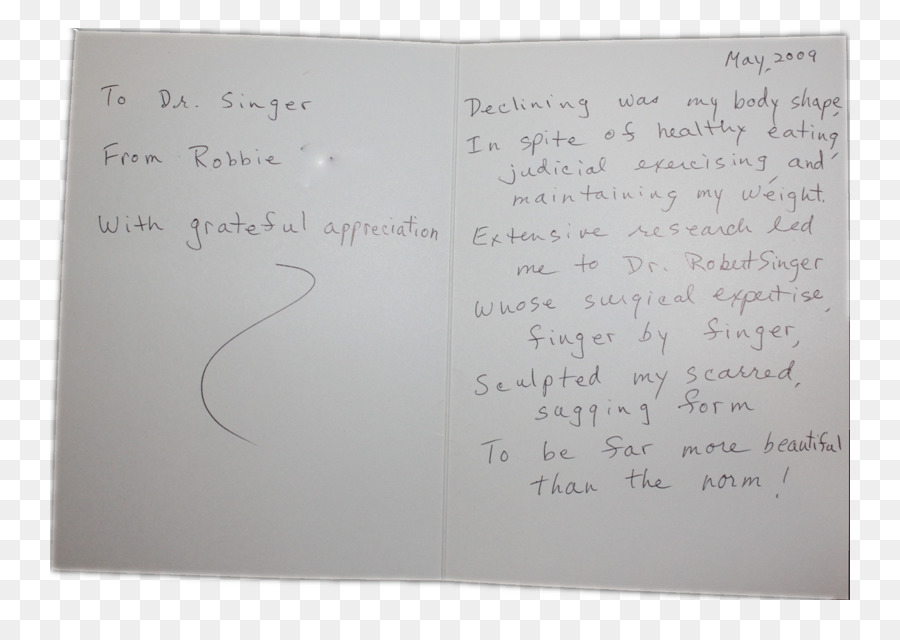 To Dr. Singer
From Robbie
With grateful appreciation
May, 2009
Declining was my body shape,
In spite of healthy eating,
judicial exercising, and
maintaining my weight.
Extensive research led
me to Dr. Robert Singer
Whose surgical expertise,
finger by finger,
Sculpted my scarred,
sagging form
To be far more beautiful
than the norm!